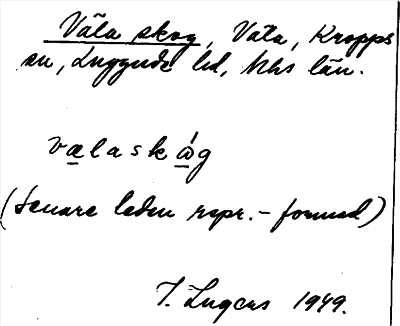 Våla skog, Våla, Kropps
sn, Luggude hd, Mhs län.
vælaskώg
(senare leden rspr.-formad)
I. Ingers 1949.